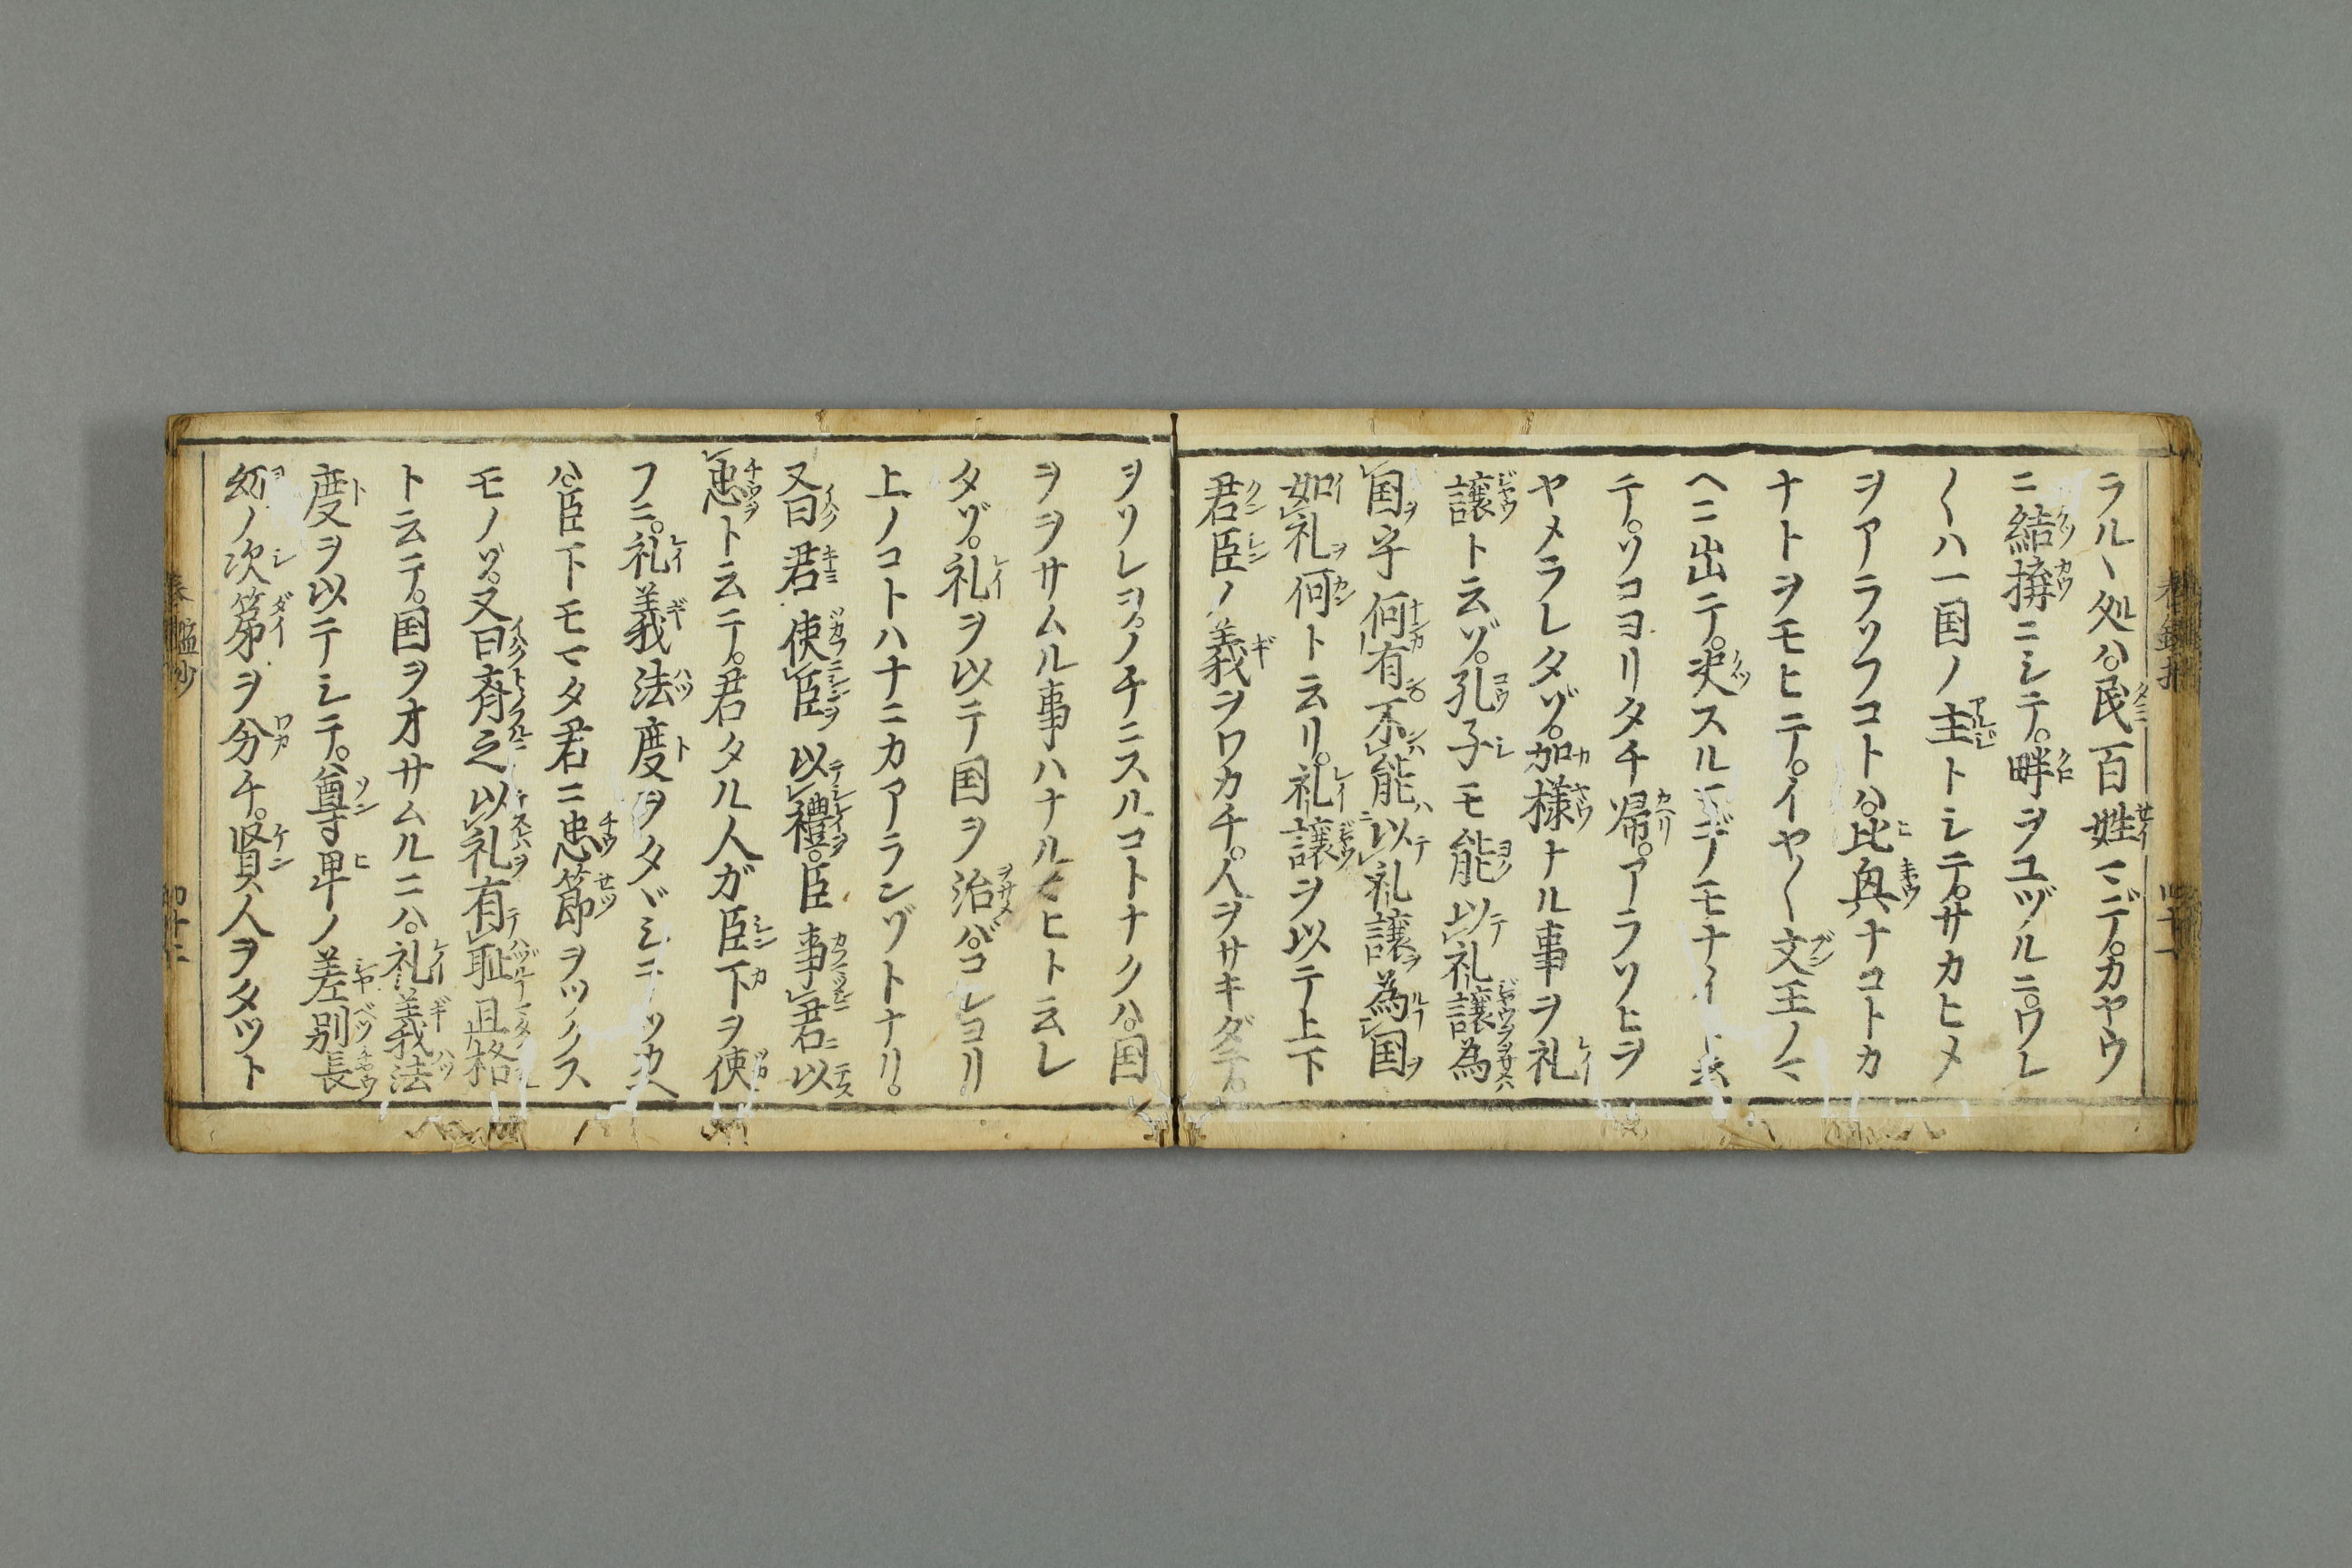 ラルヽ処ハ。民百姓マデ。カヤウ
ニ結搆ニシテ。畔ヲユヅルニ。ワレ
〱ハ一国ノ主トシテ。サカヒメ
ヲアラソフコトハ。比興ナコトカ
ナトヲモヒテ。イヤ〱文王ノマ
ヘニ出テ。決スルマデノモナイト云
テ。ソコヨリタチ帰。アラソヒヲ
ヤメラレタゾ。加様ナル事ヲ礼
譲ト云ゾ。孔子モ能以礼譲為
国乎何有不能以礼譲為国
如礼何ト云リ。礼譲ヲ以テ上下
君臣ノ義ヲワカチ。人ヲサキダテ。
ヲソレヲノチニスルコトナクハ。国
ヲヲサムル事ハナルマヒト云レ
タゾ。礼ヲ以テ国ヲ治バ。コレヨリ
上ノコトハナニカアランゾトナリ。
又曰君使臣以禮。臣事君以
忠ト云テ。君タル人ガ臣下ヲ使
フニ。礼義法度ヲタヾシテツカヘ
ハ。臣下モマタ君ニ忠節ヲツクス
モノゾ。又曰斉之以礼有耻且格
ト云テ。国ヲオサムルニハ。礼義法
度ヲ以テシテ。尊卑ノ差別長
幼ノ次第ヲ分チ。賢人ヲタツト